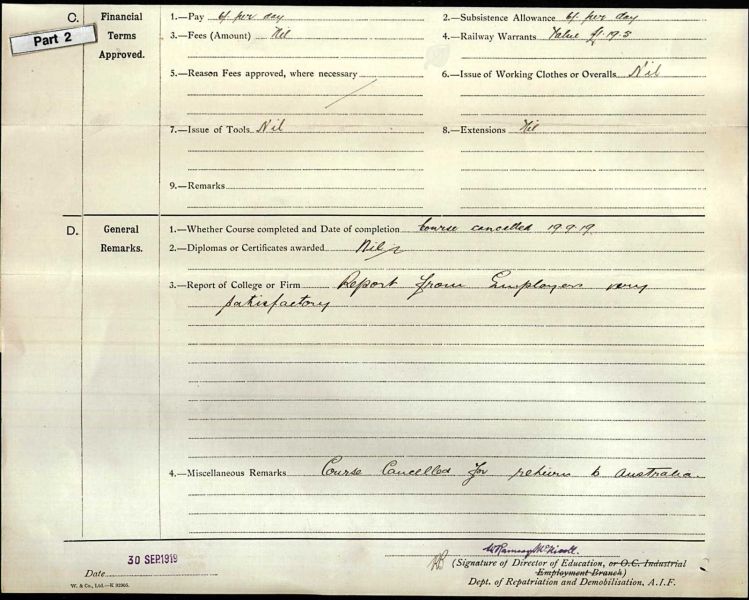 Part 2
C. Financial Terms Approved.
1.—Pay 6/. per day
2.—Subsistence Allowance 6/. per day
3.—Fees (Amount) Nil
4.—Railway Warrants Value £1.19.5
5.—Reason Fees approved, where necessary
6.—Issue of Working Clothes or Overalls Nil
7.—Issue of Tools Nil
8.—Extensions Nil
9.—Remarks
D. General Remarks.
1.—Whether Course completed and Date of completion Course cancelled 19.9.19.
2.—Diplomas or Certificates awarded Nil
3.—Report of College or Firm Report from Employers very
satisfactory
4.—Miscellaneous Remarks Course Cancelled for return to Australia.
30 SEP. 1919
Date
W. & Co., Ltd.—K 92305.
W Ramsay McNicoll.
(Signature of Director of Education, or O.C. Industrial
Employment Branch)
Dept. of Repatriation and Demobilisation, A.I.F.